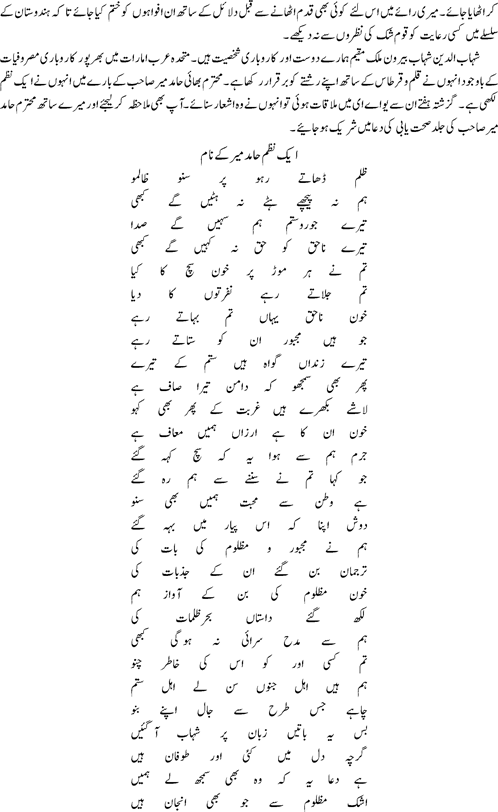 کر اٹھایا جائے۔ میری رائے میں اس لئے کوئی بھی قدم اٹھانے سے قبل دلائل کے ساتھ ان افواہوں کو ختم کیا جائے تاکہ ہندوستان کے
سلسلے میں کسی رعایت کو قوم شک کی نظروں سے نہ دیکھے۔
شہاب الدین شہاب بیرون ملک مقیم ہمارے دوست اور کاروباری شخصیت ہیں۔ متحدہ عرب امارات میں بھرپور کاروباری مصروفیات
کے باوجود انہوں نے قلم و قرطاس کے ساتھ اپنے رشتے کو برقرار رکھا ہے۔ محترم بھائی حامد میر صاحب کے بارے میں انہوں نے ایک نظم
لکھی ہے۔ گزشتہ ہفتے ان سے یو اے ای میں ملاقات ہوئی تو انہوں نے وہ اشعار سنائے۔ آپ بھی ملاحظہ کر لیجئے اور میرے ساتھ محترم حامد
میر صاحب کی جلد صحت یابی کی دعا میں شریک ہو جائیے۔
ایک نظم حامد میر کے نام
ظلم ڈھاتے رہو پر سنو ظالمو
ہم نہ پیچھے ہٹے نہ ہٹیں گے کبھی
تیرے جوروستم ہم سہیں گے صدا
تیرے ناحق کو حق نہ کہیں گے کبھی
تم نے ہر موڑ پر خون سچ کا کیا
تم جلاتے رہے نفرتوں کا دیا
خون ناحق یہاں تم بہاتے رہے
جو ہیں مجبور ان کو ستاتے رہے
تیرے زنداں گواہ ہیں ستم کے تیرے
پھر بھی سمجھو کہ دامن تیرا صاف ہے
لاشے بکھرے ہیں غربت کے پھر بھی کہو
خون ان کا ہے ارزاں ہمیں معاف ہے
جرم ہم سے ہوا یہ کہ سچ کہہ گئے
جو کہا تم نے سننے سے ہم رہ گئے
ہے وطن سے محبت ہمیں بھی سنو
دوش اپنا کہ اس پیار میں بہہ گئے
ہم نے مجبور و مظلوم کی بات کی
ترجمان بن گئے ان کے جذبات کی
خون مظلوم کی بن کے آواز ہم
لکھ گئے داستاں بحرظلمات کی
ہم سے مدح سرائی نہ ہوگی کبھی
تم کسی اور کو اس کی خاطر چنو
ہم ہیں اہل جنوں سن لے اہل ستم
چاہے جس طرح سے جال اپنے بنو
بس یہ باتیں زبان پر شہاب آ گئیں
گرچہ دل میں کئی اور طوفان ہیں
ہے دعا یہ کہ وہ بھی سمجھ لے ہمیں
اشک مظلوم سے جو بھی انجان ہیں